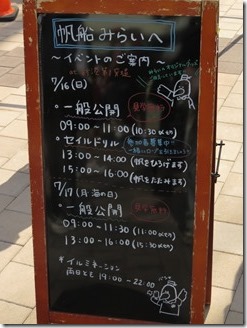 帆船みらいへ
～イベントのご案内～
7/16(日)
・一般公開 見学無料
09:00-11:00 (10:30〆切)
・セイルドリル
13:00-14:00 (帆をひろげます)
15:00-16:00 (帆をたたみます)
7/17(月・海の日)
・一般公開 見学無料
09:00-11:30 (11:00〆切)
13:00-16:00 (15:30〆切)
*イルミネーション
両日とも 19:00-22:00